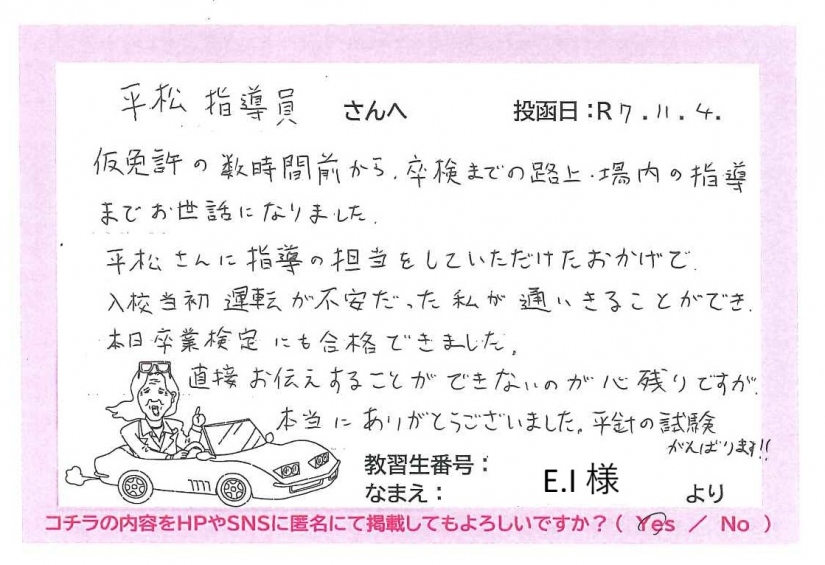 平松 指導員 さんへ 投函日：R7.11.4.
仮免許の数時間前から、卒検までの路上・場内の指導
までお世話になりました。
平松さんに指導の担当をしていただけたおかげで、
入校当初 運転が不安だった私が通いきることができ、
本日卒業検定にも合格できました。
直接お伝えすることができないのが心残りですが、
本当にありがとうございました。平針の試験
がんばります!!
教習生番号：
なまえ： E.I 様 より
コチラの内容をHPやSNSに匿名にて掲載してもよろしいですか？（ Yes ／ No ）